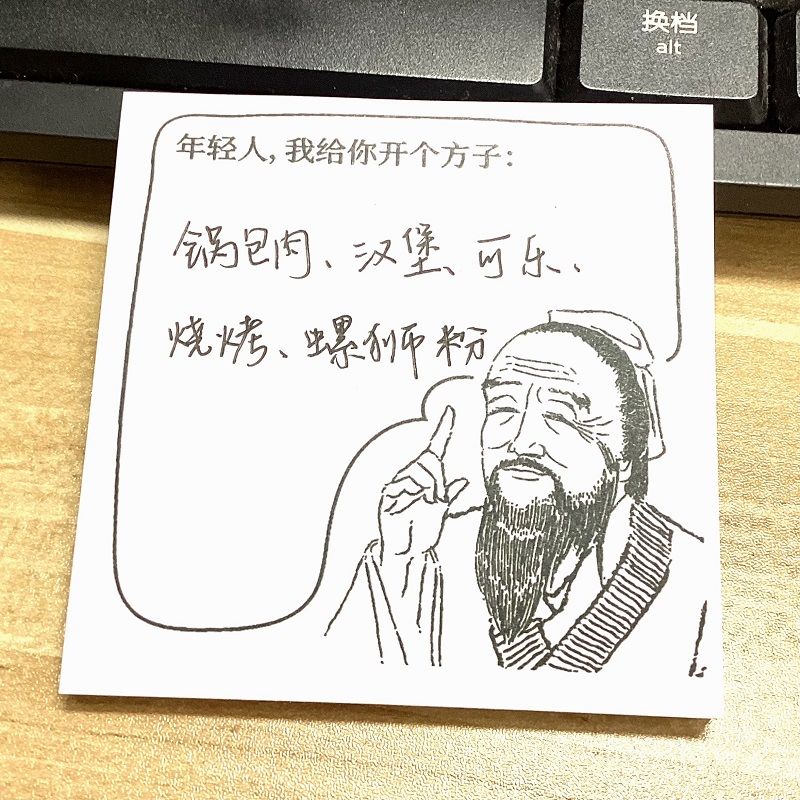 换档
alt
年轻人，我给你开个方子：
锅包肉、汉堡、可乐、
烧烤、螺狮粉